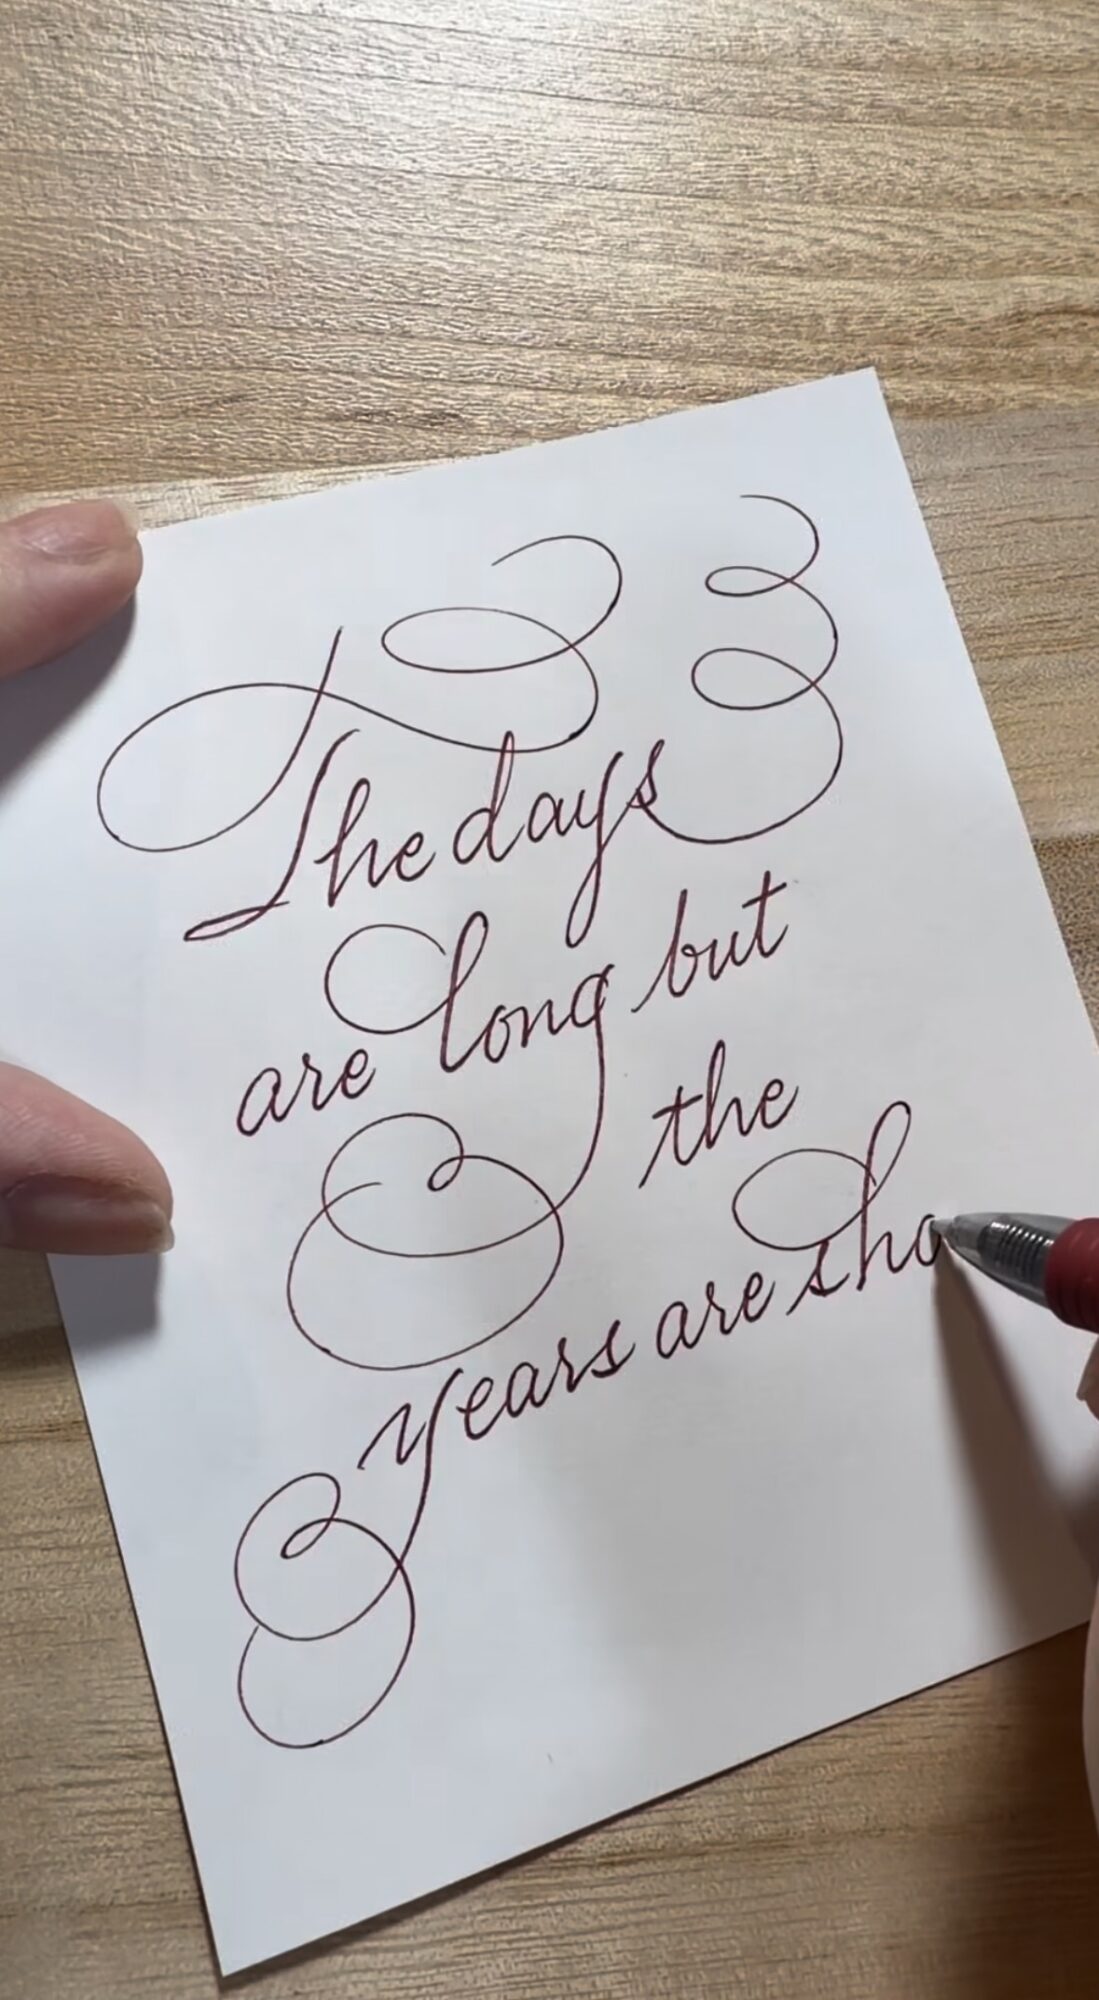 The days
are long but
the
years are sho